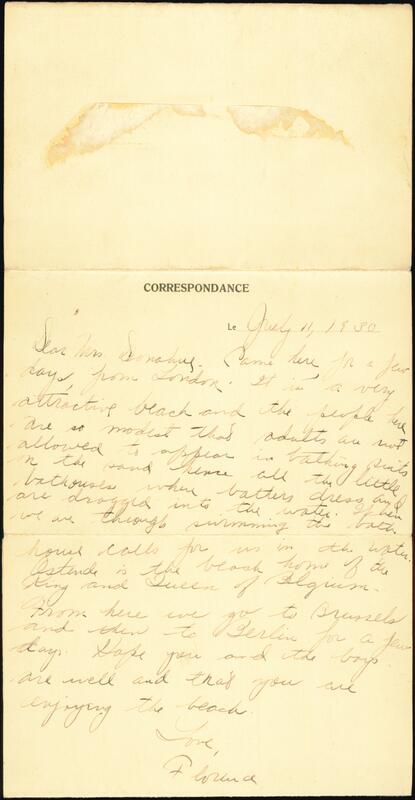 CORRESPONDANCE
Le July 11, 1930
Dear Mrs Donahue, Came here for a few
days, from London. It is a very
attractive beach and the people here
are so modest that adults are not
allowed to appear in bathing suits
on the sand hence all the little
bathouses where bathers dress and
are dragged into the water. When
we are through swimming the bath
house calls for us in the water.
Ostende is the beach home of the
King and Queen of Belgium.
From here we go to Brussels
and then to Berlin for a few
days. Hope you and the boys
are well and that you are
enjoying the beach
Love,
Florence